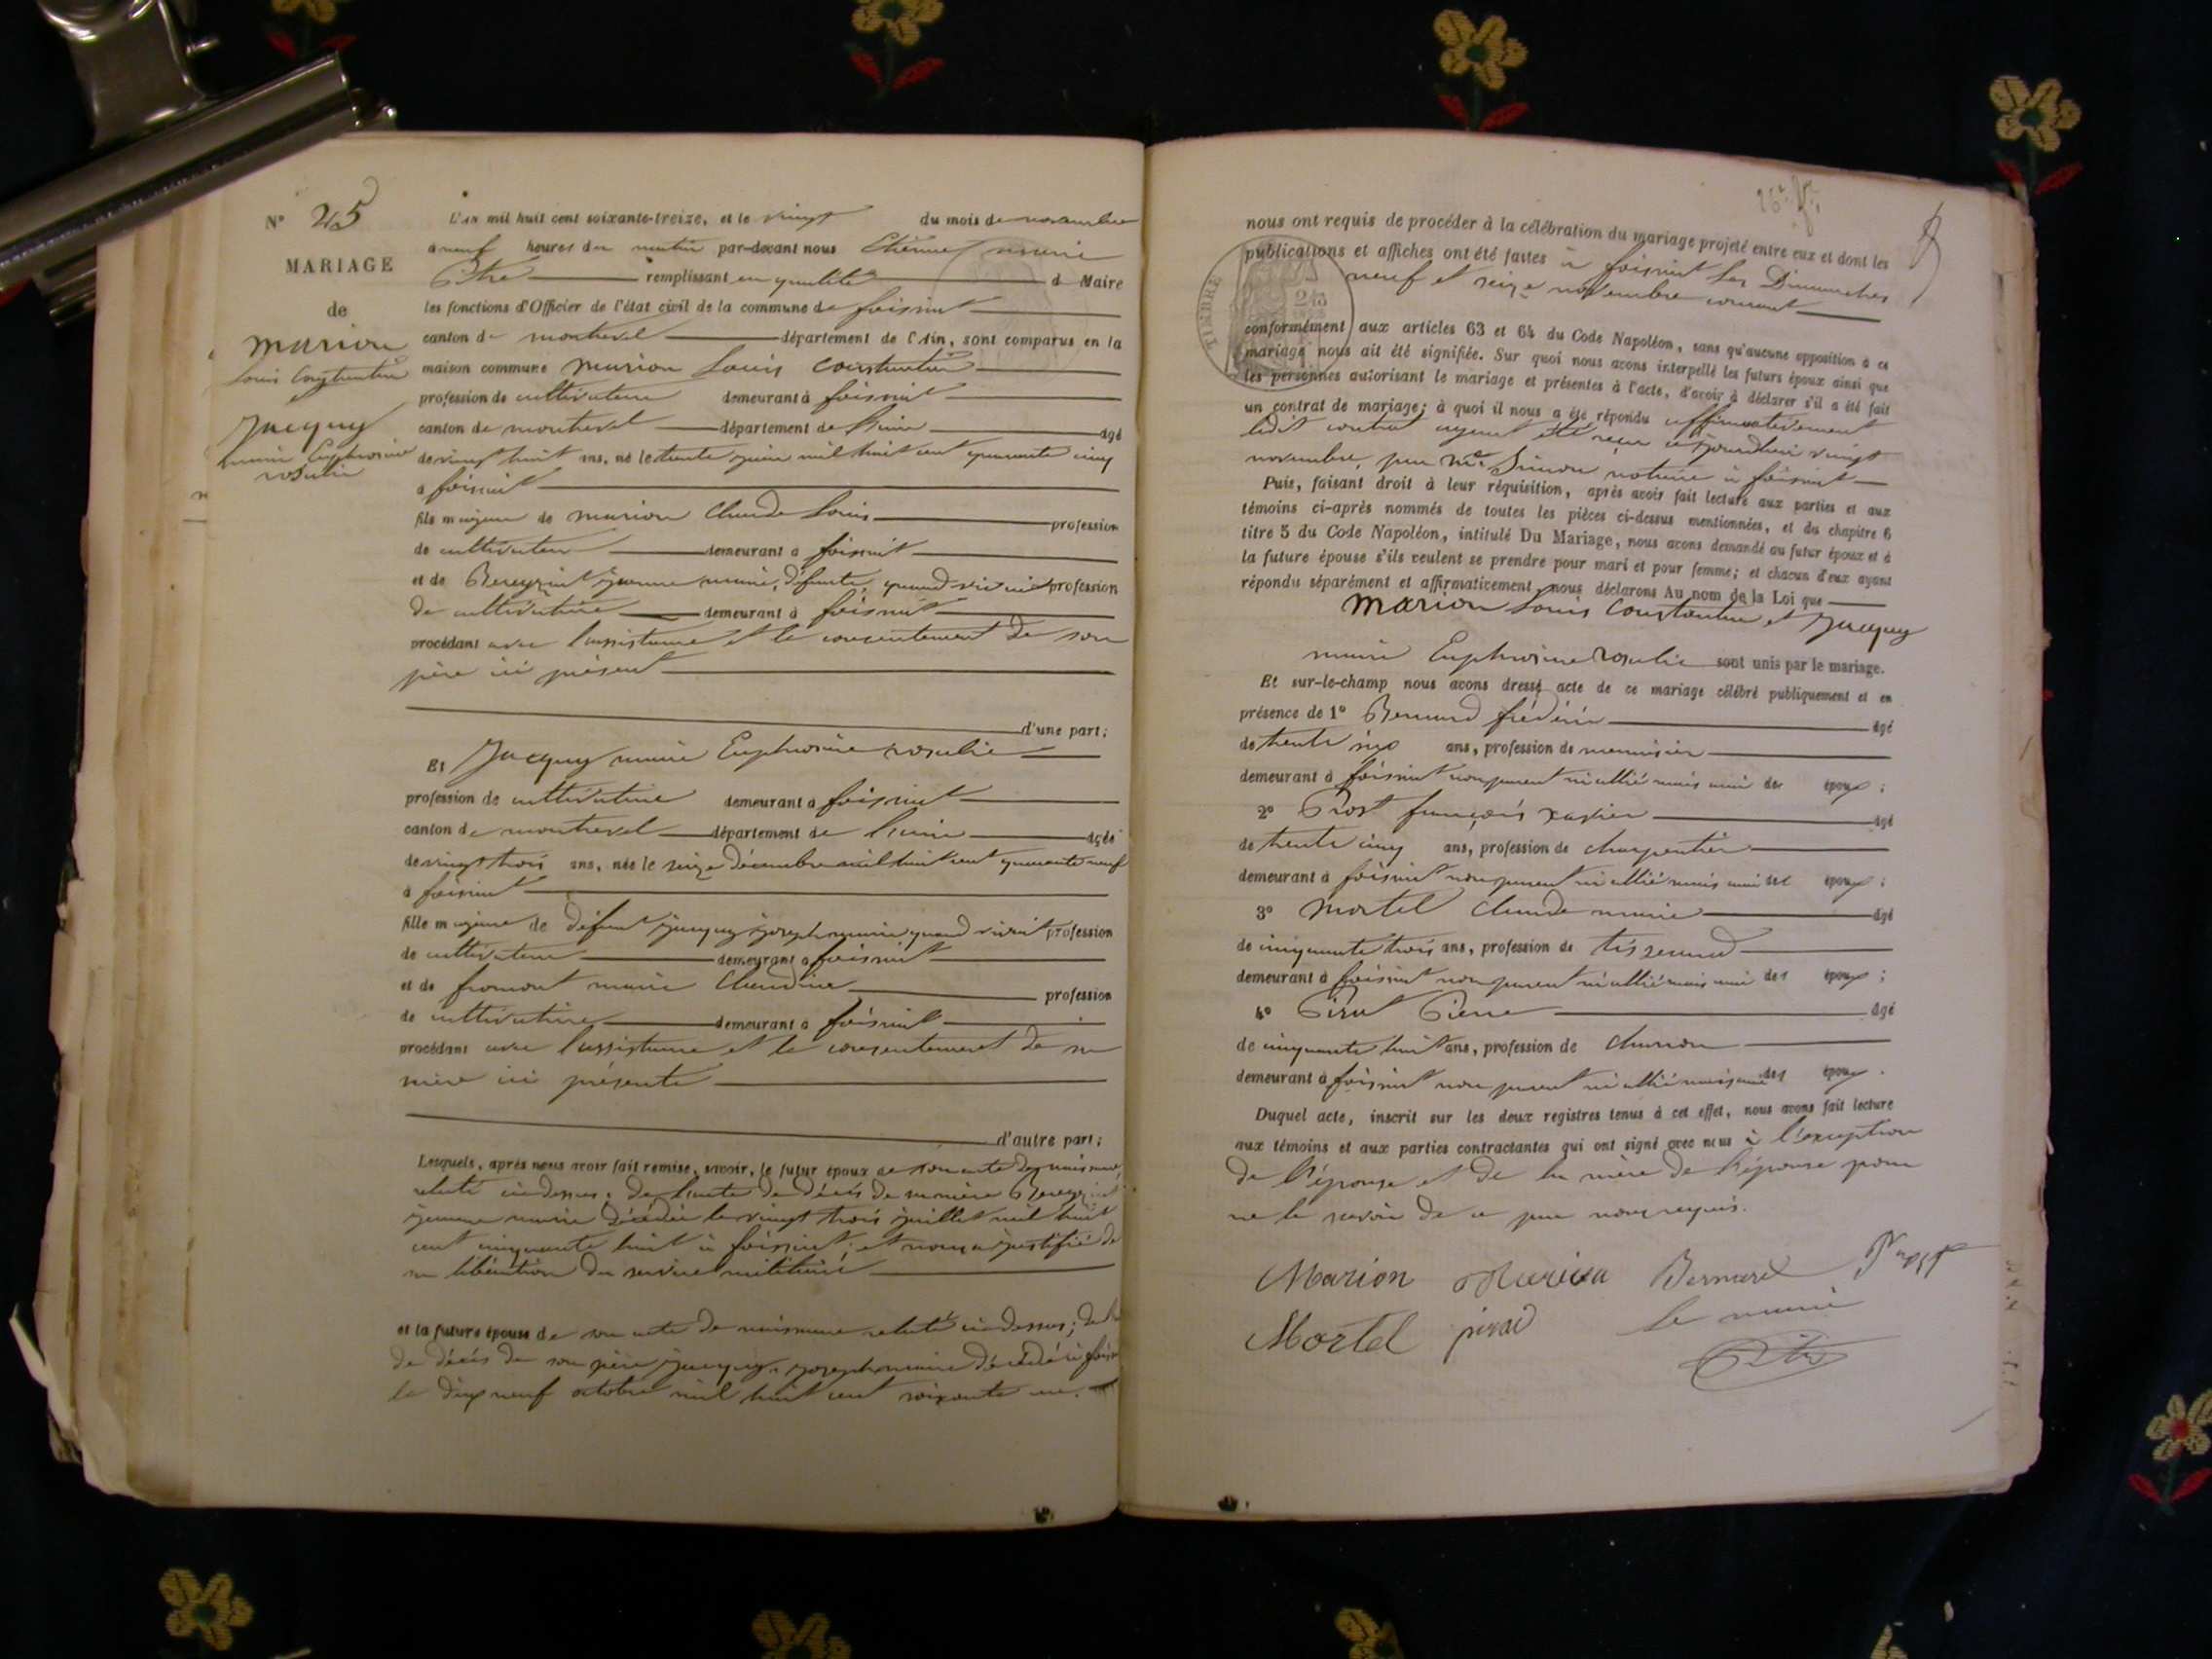 N° 25
MARIAGE
de
Marion
Louis Constantin
Jacquy
marie Euphrosine
rosalie
L'an mil huit cent soixante-treize, et le vingt du mois de novembre
à neuf heures du matin par-devant nous Etienne marie
remplissant en qualité d Maire
les fonctions d'Officier de l'état civil de la commune de foissiat
canton de montrevel département de l'Ain, sont comparus en la
maison commune Marion Louis Constantin
profession de cultivateur demeurant à foissiat
canton de montrevel département de l'ain agé
de vingt huit ans, né le trente juin mil huit cent quarante cinq
à foissiat
fils majeur de marion Claude Louis profession
de cultivateur demeurant à foissiat
et de Bereyziat jeanne marie, défunte, quand vivait profession
de cultivatrice demeurant à foissiat
procédant avec l'assistance et le consentement de son
père ici présent
d'une part;
Et Jacquy marie Euphrosine rosalie
profession de cultivatrice demeurant à foissiat
canton de montrevel département de l'ain agée
de vingt trois ans, née le seize décembre mil huit cent quarante neuf
à foissiat
fille majeure de défunt jacquy joseph marie quand vivait profession
de cultivateur demeurant à foissiat
et de fromont marie Claudine profession
de cultivatrice demeurant à foissiat
procédant avec l'assistance et le consentement de sa
mère ici présente
d'autre part;
Lesquels, après nous avoir fait remise, savoir, le futur époux de son acte de naissance
relaté ci-dessus; de l'acte de décès de sa mère Bereyziat
jeanne marie décédée le vingt trois juillet mil huit
cent cinquante huit à foissiat; et nous a justifié de
sa libération du service militaire
et la future épouse de son acte de naissance relaté ci-dessus; de l'
de décès de son père jacquy joseph marie décédé à foiss
le dix neuf octobre mil huit cent soixante un.
nous ont requis de procéder à la célébration du mariage projeté entre eux et dont les
publications et affiches ont été faites à foissiat les Dimanches
neuf et seize novembre courant
TIMBRE
conformément aux articles 63 et 64 du Code Napoléon, sans qu'aucune opposition à ce
mariage nous ait été signifiée. Sur quoi nous avons interpellé les futurs époux ainsi que
les personnes autorisant le mariage et présentes à l'acte, d'avoir à déclarer s'il a été fait
un contrat de mariage; à quoi il nous a été répondu affirmativement
ledit contrat ayant été reçu ce jourd'hui vingt
novembre, par Me Simon notaire à foissiat
Puis, faisant droit à leur réquisition, après avoir fait lecture aux parties et aux
témoins ci-après nommés de toutes les pièces ci-dessus mentionnées, et du chapitre 6
titre 5 du Code Napoléon, intitulé Du Mariage, nous avons demandé au futur époux et à
la future épouse s'ils veulent se prendre pour mari et pour femme; et chacun d'eux ayant
répondu séparément et affirmativement, nous déclarons Au nom de la Loi que
Marion Louis Constantin et Jacquy
marie Euphrosine rosalie sont unis par le mariage.
Et sur-le-champ nous avons dressé acte de ce mariage célébré publiquement et en
présence de 1° Bernard frédéric agé
de trente six ans, profession de menuisier
demeurant à foissiat non parent ni allié mais ami des époux;
2° Prost françois xavier agé
de trente cinq ans, profession de charpentier
demeurant à foissiat non parent ni allié mais ami des époux;
3° Mortel Claude marie agé
de cinquante trois ans, profession de tisserand
demeurant à foissiat non parent ni allié mais ami des époux;
4° Pirat Pierre agé
de cinquante huit ans, profession de charron
demeurant à foissiat non parent ni allié mais ami des époux.
Duquel acte, inscrit sur les deux registres tenus à cet effet, nous avons fait lecture
aux témoins et aux parties contractantes qui ont signé avec nous à l'exception
de l'épouse et de la mère de l'épouse pour
ne le savoir de ce par nous requis.
Marion Marion Bernard Prost
Mortel pirat le maire